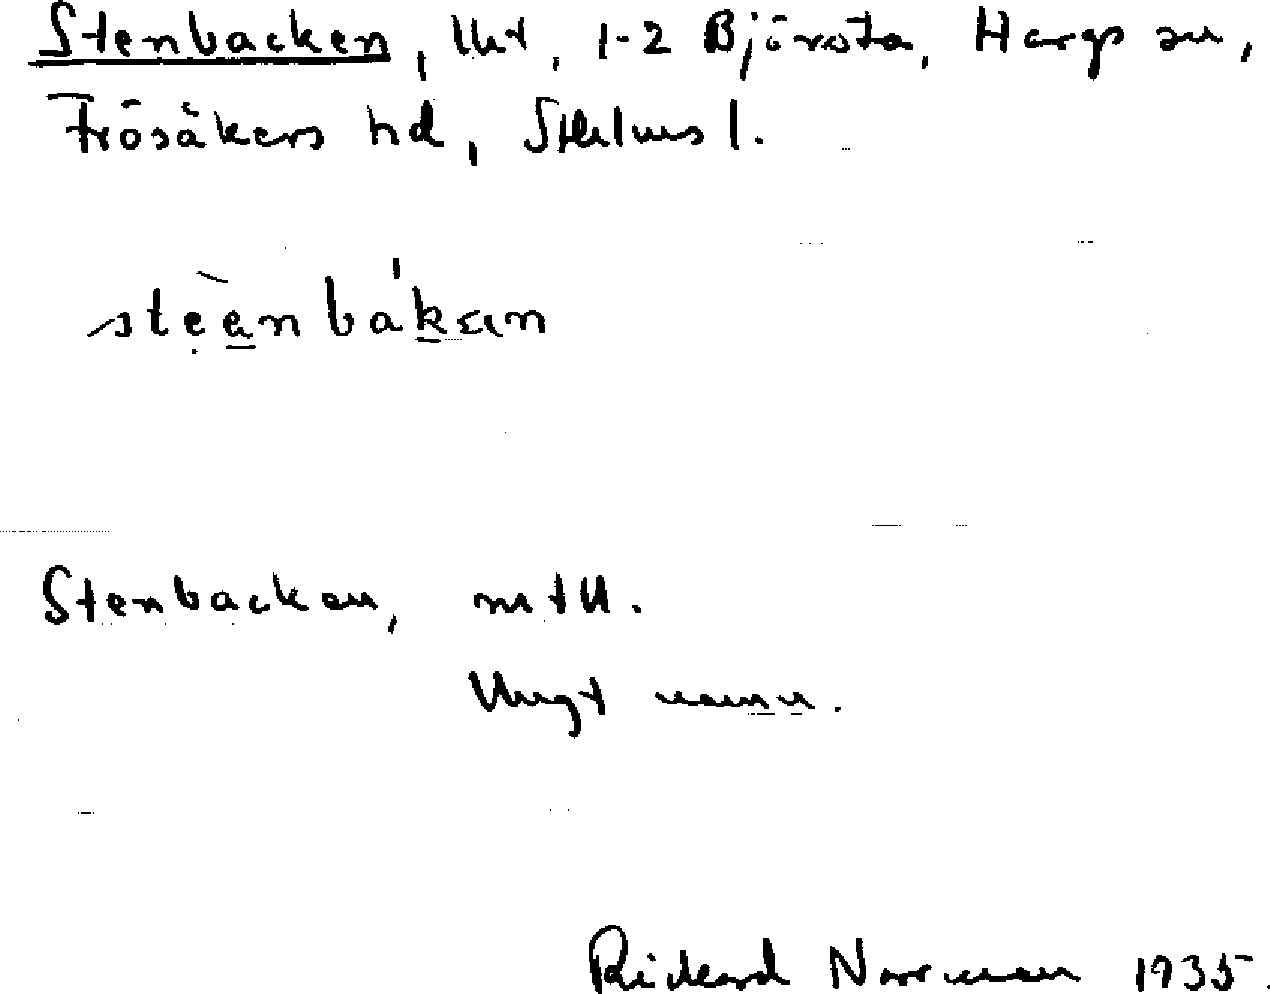 Stenbacken, lht, 1-2 Björsta, Hargs sn,
Frösåkers hd, Sthlms l.
stèanbákan
Stenbacken, mtll.
Ungt namn.
Rickard Norrman 1935.